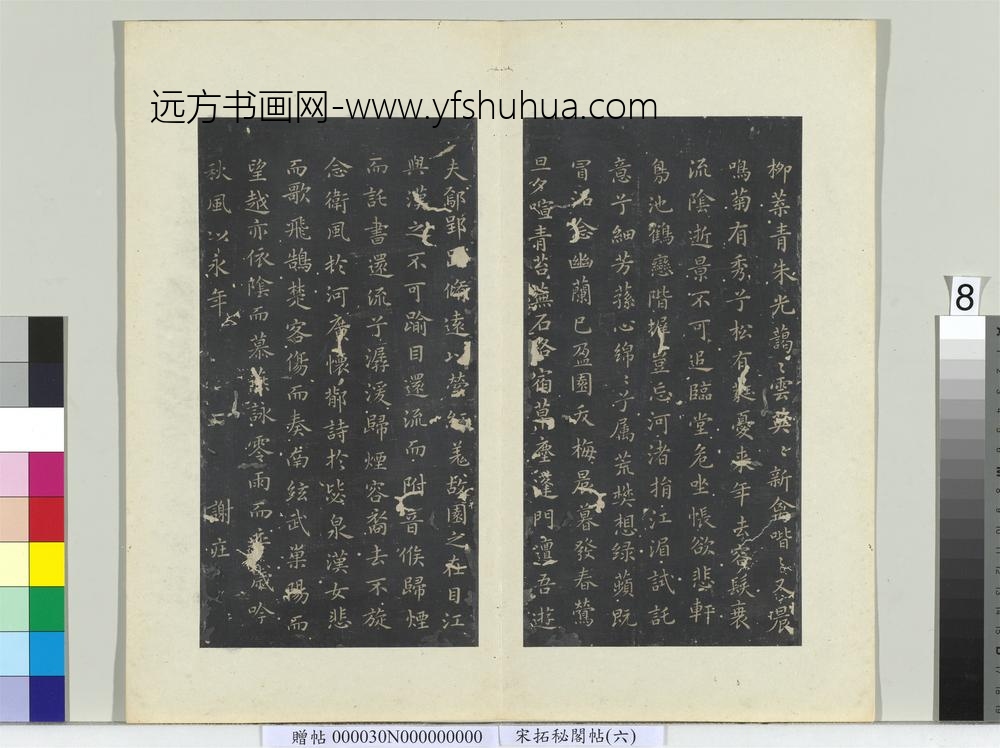 远方书画网-www.yfshuhua.com
柳葉青朱光藹〻雲英〻新禽喈〻又曰
鳴菊有秀兮松有蕤憂来年去容髮衰
流陰逝景不可追臨堂危坐悵欲悲軒
鳬池鶴戀階墀豈忘河渚捐江湄試託
意兮細芳蓀心綿〻兮属荒樊想緑蘋既
冒沼念幽蘭已盈園夭桃晨暮發春鶯
旦夕喧青苔蕪石路宿草塵蓬門邅吾遊
夫鄢郢路修遠以縈紆羌故園之在目江
與漢之不可踰目還流而附音候歸煙
而託書還流兮潺湲歸煙容裔去不旋
念衛風於河廣懷鄁詩於毖泉漢女悲
而歌飛鵠楚客傷而奏南絃武巢陽而
望越亦依陰而慕詠零雨而歲吟
秋風以永年
謝莊
8
贈帖 000030N000000000 宋拓秘閣帖(六)